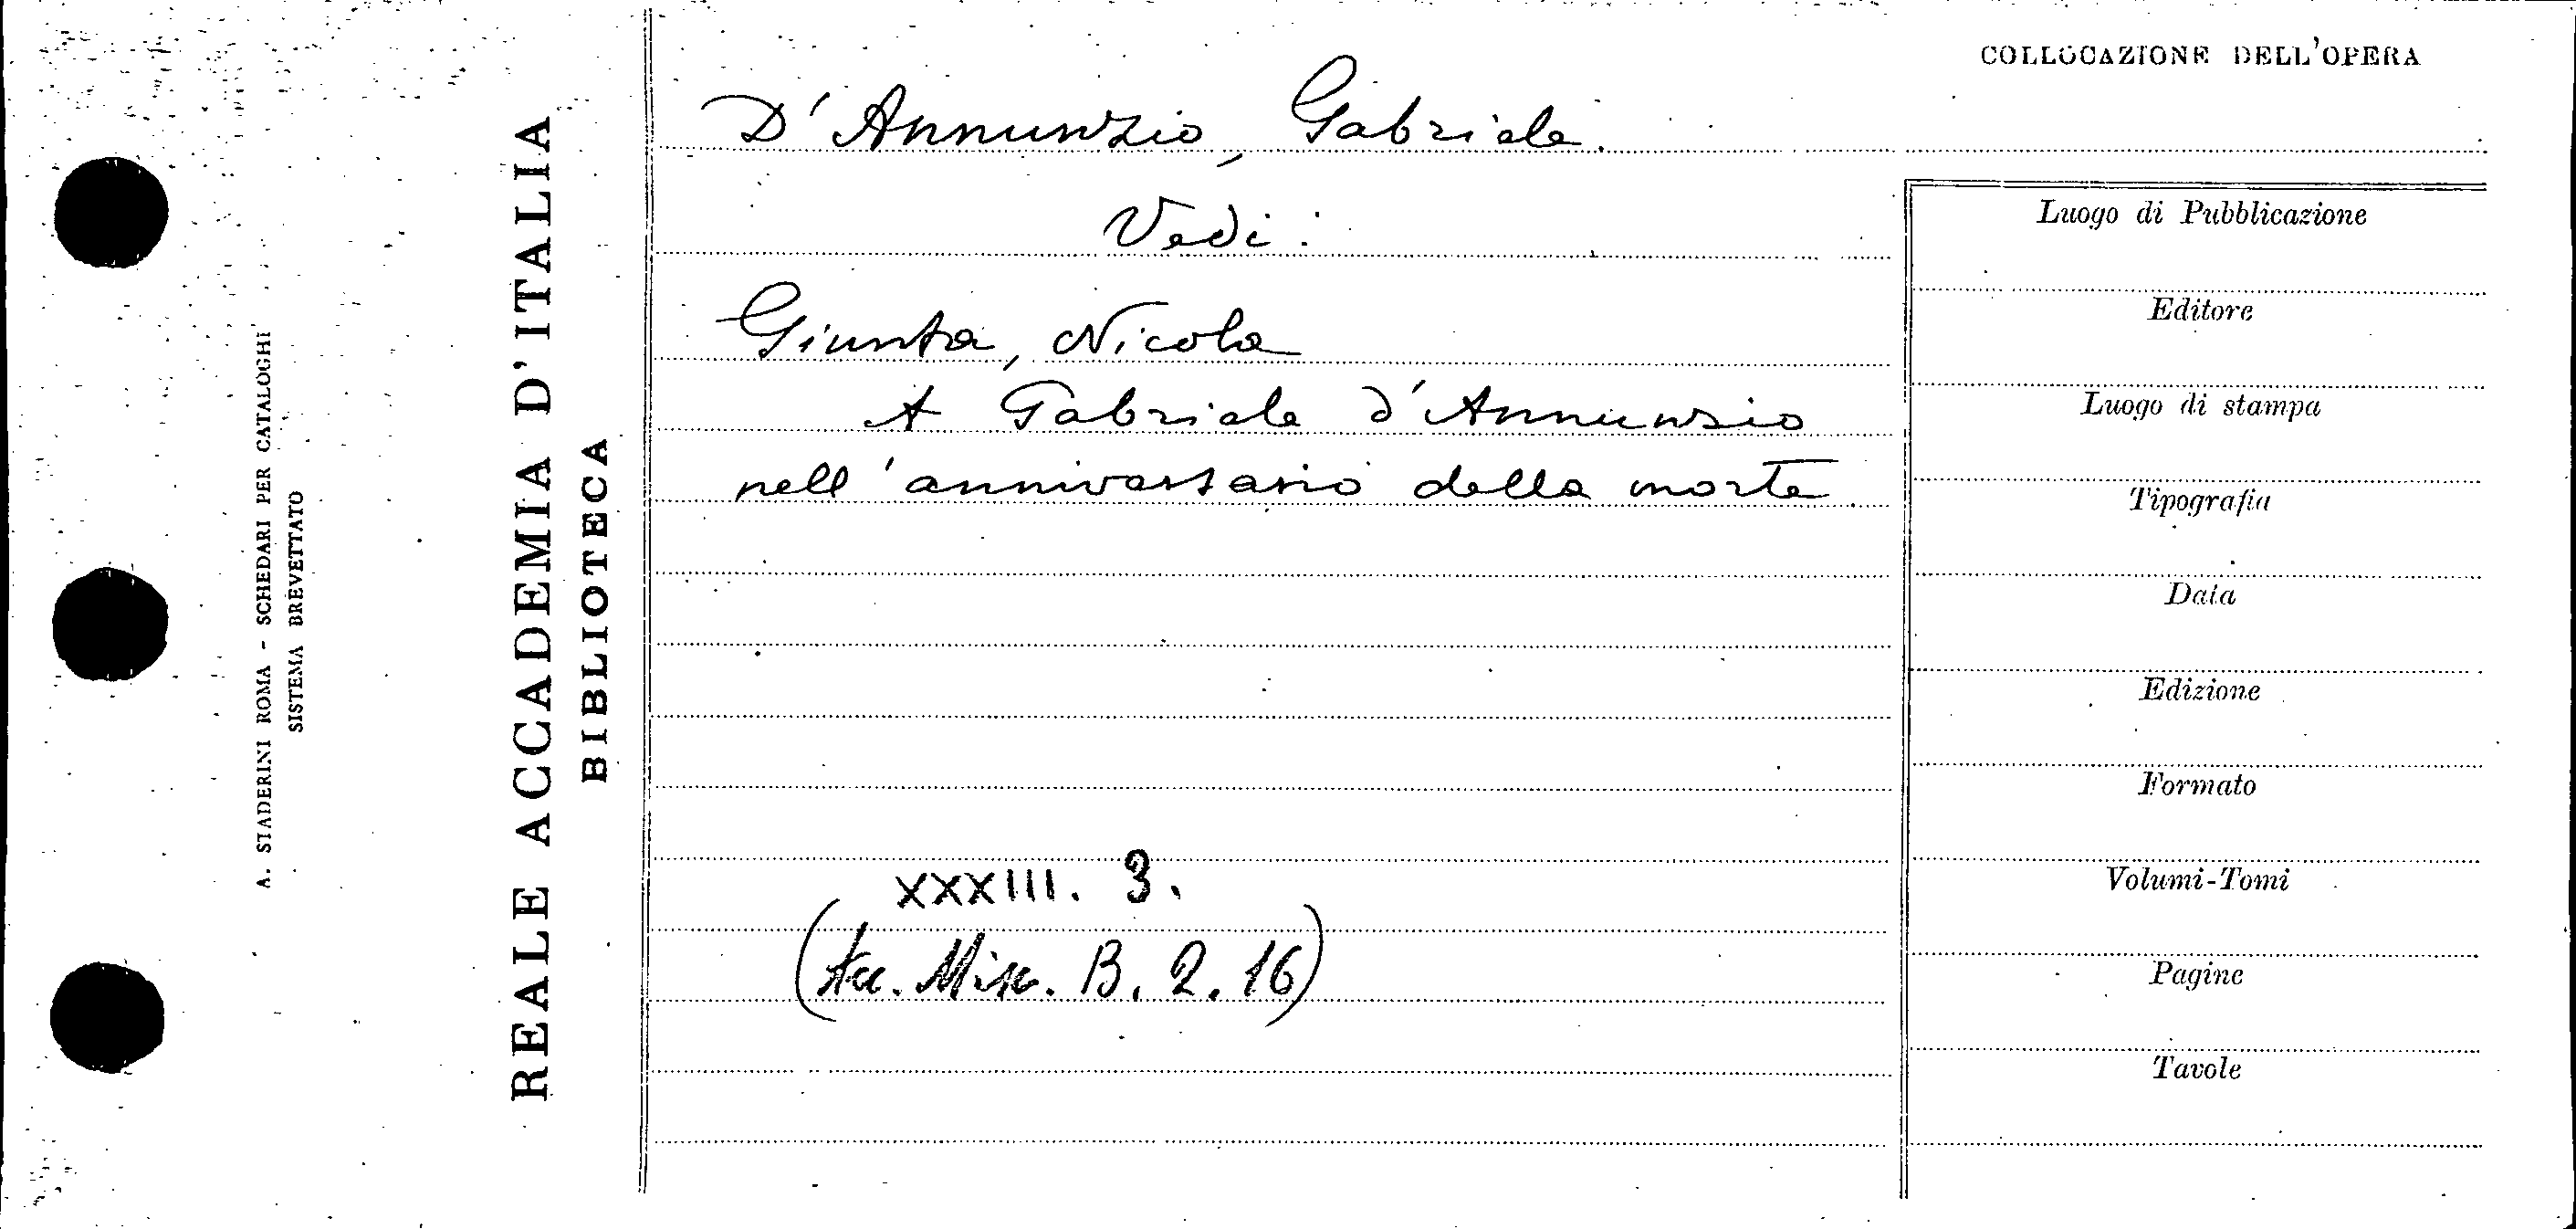 A. STADERINI ROMA - SCHEDARI PER CATALOGHI
SISTEMA BREVETTATO
REALE ACCADEMIA D'ITALIA
BIBLIOTECA
D'Annunzio, Gabriele.
Vedi:
Giunta, Nicola
A Gabriele d'Annunzio
nell'anniversario della morte
XXXIII. 3.
(Acc. Misc. B. 2. 16)
COLLOCAZIONE DELL'OPERA
Luogo di Pubblicazione
Editore
Luogo di stampa
Tipografia
Data
Edizione
Formato
Volumi-Tomi
Pagine
Tavole